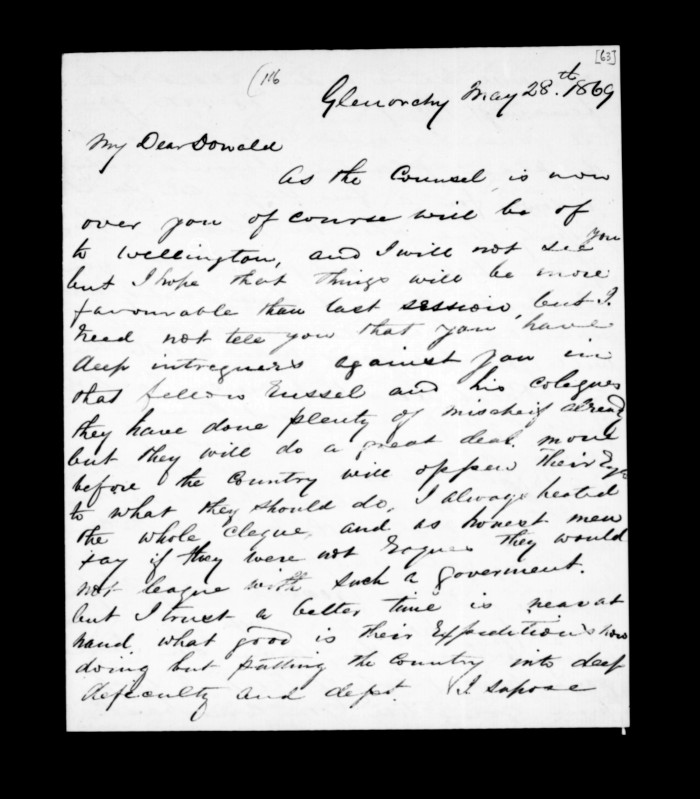 [63]
(116
Glenorchy May 28.th 1869
My Dear Donald
As the Counsel is now
over you of course will be of
to wellington, and I will not see you
but I hope that things will be more
favourable than last session, but I
need not tell you that you have
deep intreguers against you in
that fellow Russel and his colegues
they have done plenty of mischeif alread
but they will do a great deal more
before the Country will oppen their Eye
to what they should do, I always heated
the whole clegue, and as honest men
say if they were not Rogues they would
not league with such a goverment.
but I trust a better time is near at
hand. what good is their Expeditions now
doing but putting the country into deep
defeculty and dept. I supose